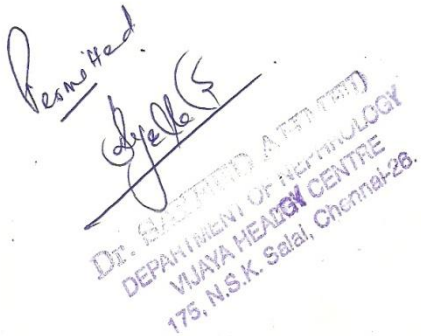 Permitted.
Dr.
DEPARTMENT OF NEPHROLOGY
VIJAYA HEALTH CENTRE
175, N.S.K. Salai, Chennai-26.